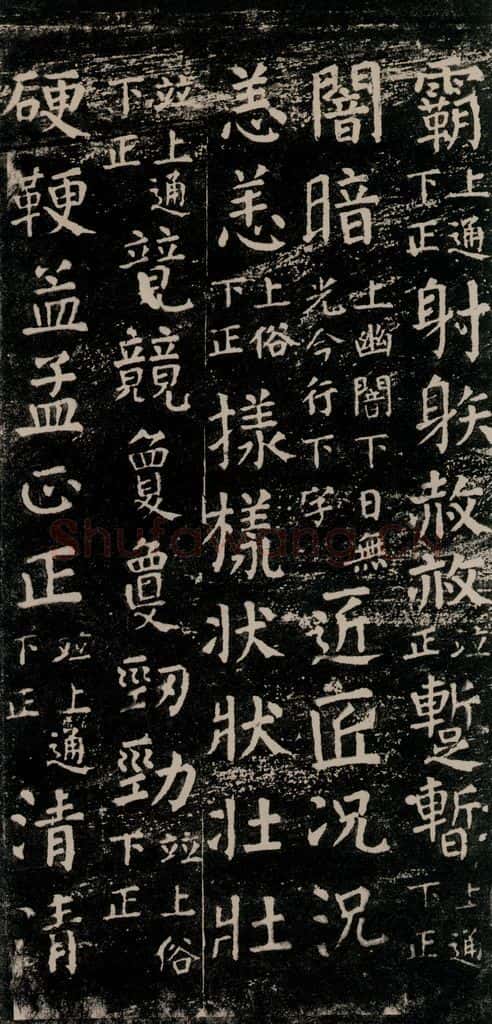 霸上通下正射䠶赦赦並正蹔暫上通下正
闇暗上幽闇下日無光今行下字近匠况況
恙恙上俗下正様樣状狀壮壯
並上通下正竸競敻敻勁勁並上俗下正
硬鞕盁孟㱏正並上通下正清凊
Shufawang.cn